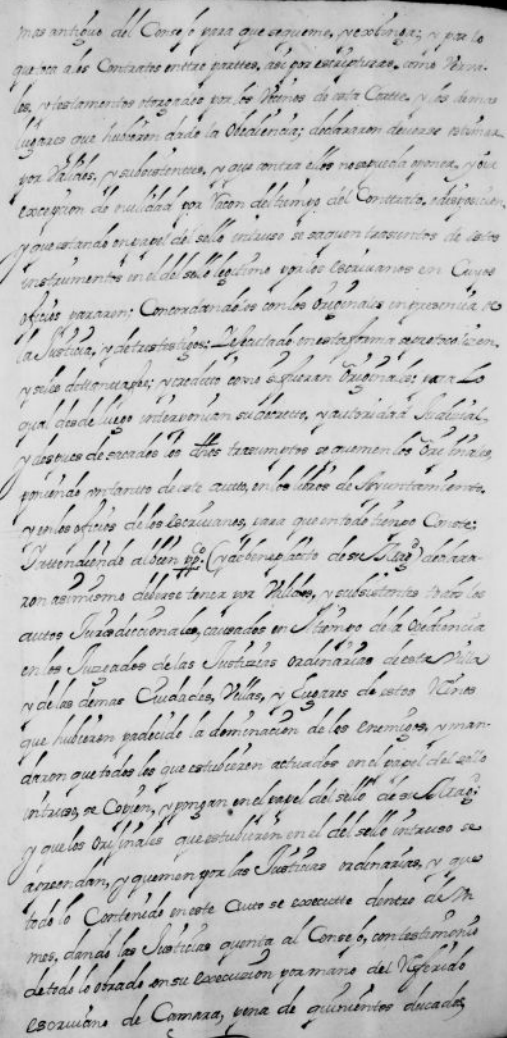 mas antiguo del Consejo para que se queme, y exttinga; y por lo
que toca a los Contratos entre partes, asi por escripturas, como Verva-
les, y testamentos otorgados por los Vecinos de esta Corte, y los demas
lugares que hubieren dado la Obediencia; declararon deverse estimar
por Validos, y subsistentes, y que contra ellos no se pueda oponer, y
excepcion de nulidad por racon del tiempo del Contrato, o disposicion,
y que estando en papel del sello intruso se saquen trasuntos de estos
instrumentos en el del sello legitimo por los Escrivanos en Cuyos
oficios pararen; Concordandolos con los Originales en presencia de
la Justicia, y de tres testigos; Y efectuado en esta forma se protocolizen,
y se les de entera fee; y credito como si fueran Originales: para Lo
qual desde luego interponian su decretto, y autoridad Judicial,
y despues de sacados los dhos trasumptos se quemen los Originales,
poniendo un tanto de este auto, en los libros de Ayuntamiento,
y en los oficios de los Escrivanos, para que en todo tiempo Conste;
Y attendiendo al bien ppco (y al beneplacito de su Magd) declara-
ron asimismo deberse tener por Validos, y subsistentes todos los
autos Jurisdiccionales, causados en el tiempo de la Obediencia
en los Juzgados de las Justicias ordinarias de esta Villa
y de las demas Ciudades, Villas, y Lugares de estos Reinos
que hubieren padecido la dominacion de los enemigos, y man-
daron que todos los que estubieren actuados en el papel del sello
intruso, se Copien, y pongan en el papel del sello de su Magd;
y que los Originales que estubieren en el del sello intruso se
aprendan, y quemen por las Justicias ordinarias, y que
todo lo Contenido en este Auto se execute dentro de Un
mes, dando las Justicias quenta al Consejo, con testimonio
de todo lo obrado en su execuzion por mano del Referido
escrivano de Camara, pena de quinientos ducados,